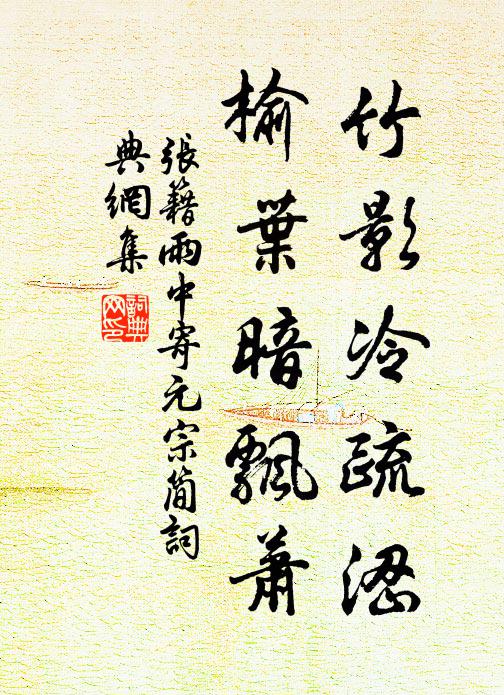 竹影冷疏澀
榆葉暗飄蕭
張籍雨中寄元宗簡詞
典網集
詞典
网印